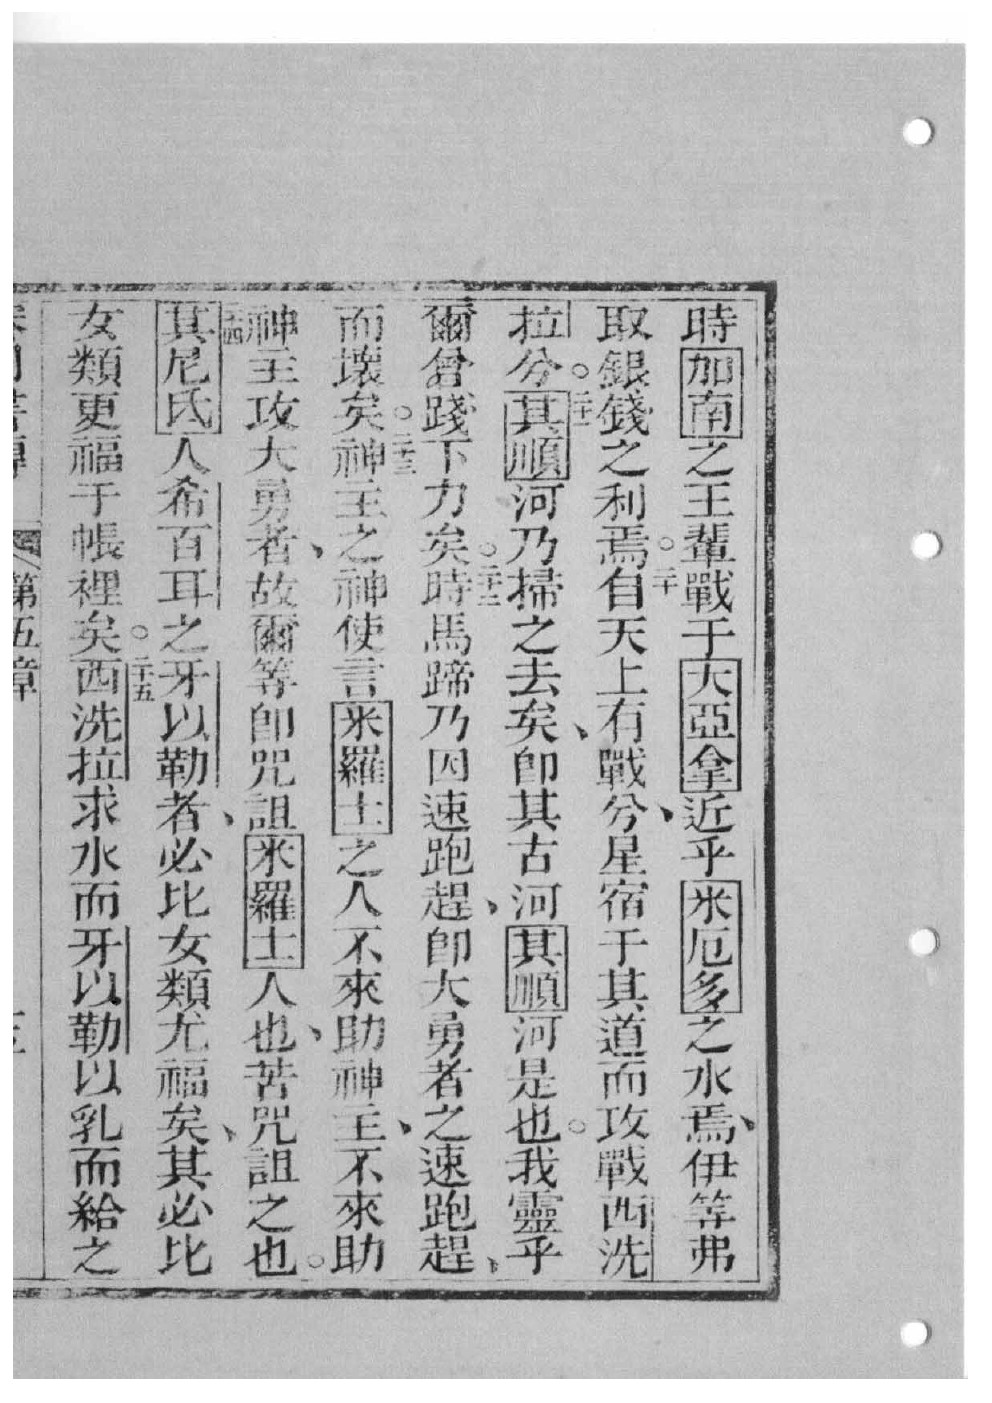 時加南之王輩戰于大亞拿近乎米厄多之水焉、伊等弗
取銀錢之利焉。二十自天上有戰兮、星宿于其道而攻戰西洗
拉兮。二十一其順河乃掃之去矣、卽其古河其順河是也。我靈乎
爾曾踐下力矣。二十二時馬蹄乃因速跑趕、卽大勇者之速跑趕、
而壞矣。二十三神主之神使言米羅士之人不來助神主、不來助
神主攻大勇者、故爾等卽咒詛米羅士人也、苦咒詛之也。
二十四其尼氏人希百耳之牙以勒者、必比女類尤福矣、其必比
女類更福于帳裡矣。二十五西洗拉求水而牙以勒以乳而給之
第五章